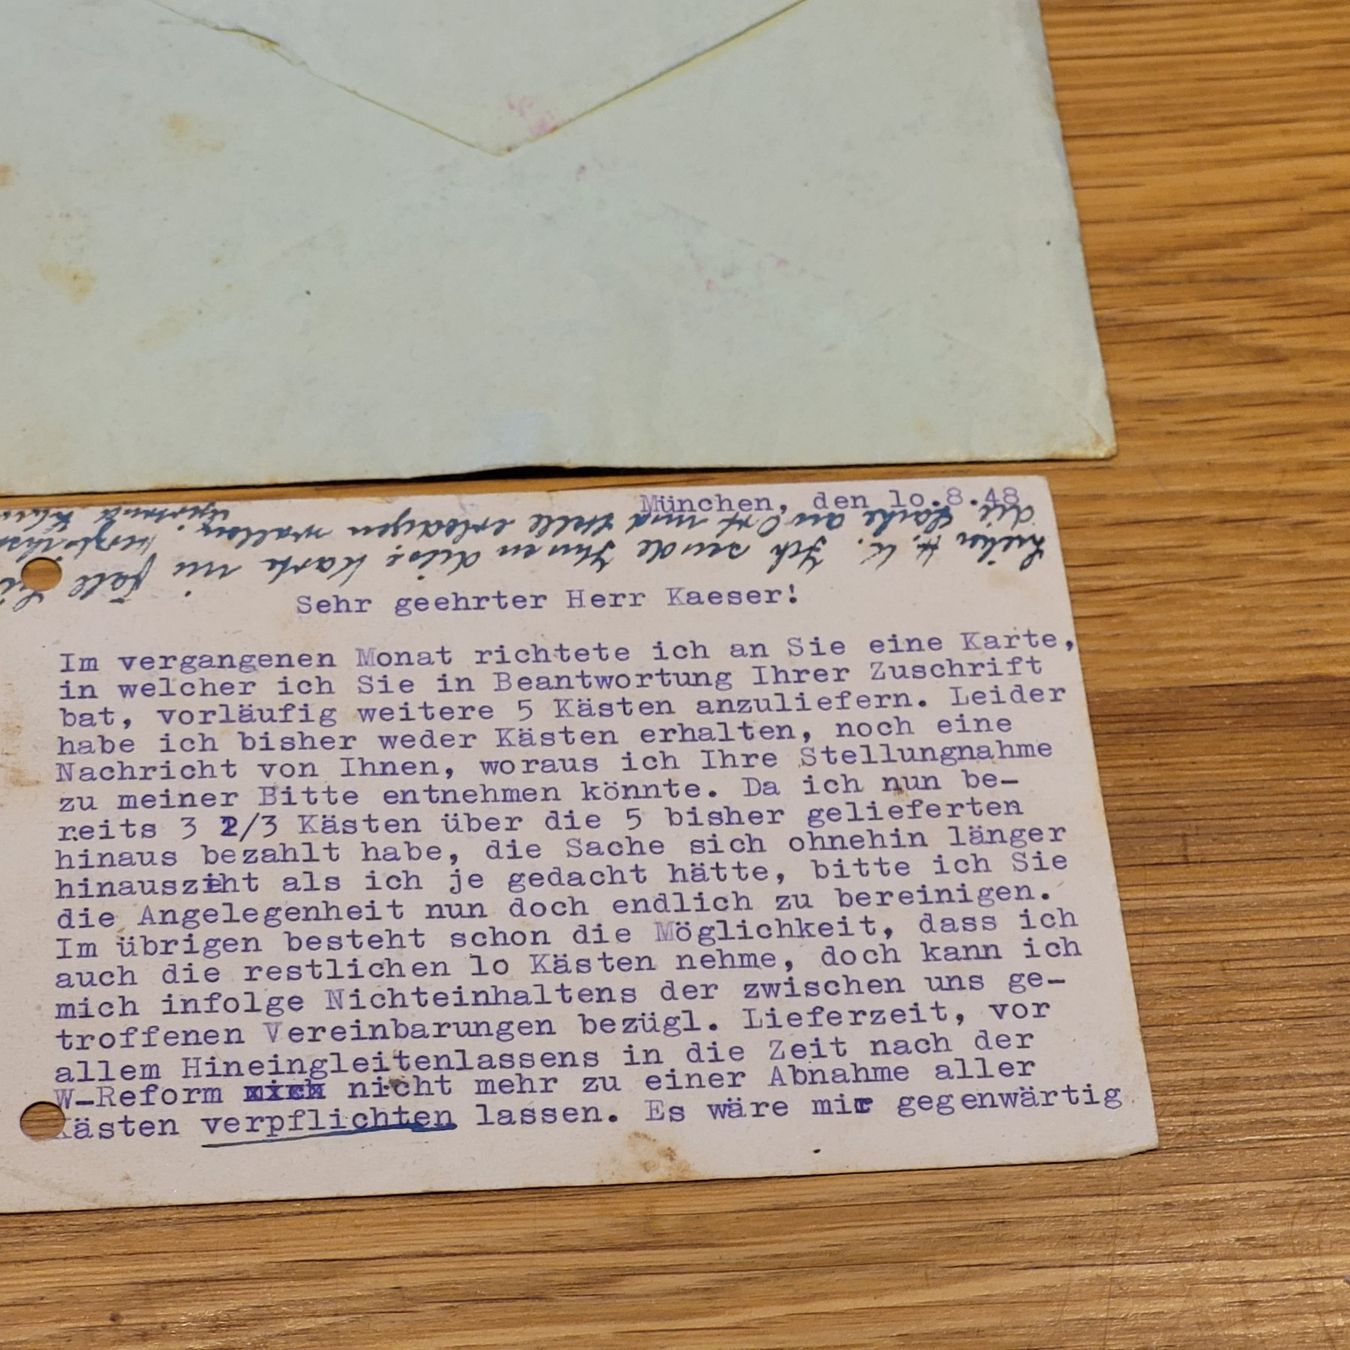 München, den 1o.8.48
Lieber H. K. Ich sende Ihnen diese Karte im Fall Sie
die Sache an Ort und Stelle erledigen wollen.
Sehr geehrter Herr Kaeser!
Im vergangenen Monat richtete ich an Sie eine Karte,
in welcher ich Sie in Beantwortung Ihrer Zuschrift
bat, vorläufig weitere 5 Kästen anzuliefern. Leider
habe ich bisher weder Kästen erhalten, noch eine
Nachricht von Ihnen, woraus ich Ihre Stellungnahme
zu meiner Bitte entnehmen könnte. Da ich nun be-
reits 3 2/3 Kästen über die 5 bisher gelieferten
hinaus bezahlt habe, die Sache sich ohnehin länger
hinausziht als ich je gedacht hätte, bitte ich Sie
die Angelegenheit nun doch endlich zu bereinigen.
Im übrigen besteht schon die Möglichkeit, dass ich
auch die restlichen 1o Kästen nehme, doch kann ich
mich infolge Nichteinhaltens der zwischen uns ge-
troffenen Vereinbarungen bezügl. Lieferzeit, vor
allem Hineingleitenlassens in die Zeit nach der
W-Reform nicht mehr zu einer Abnahme aller
Kästen verpflichten lassen. Es wäre mir gegenwärtig